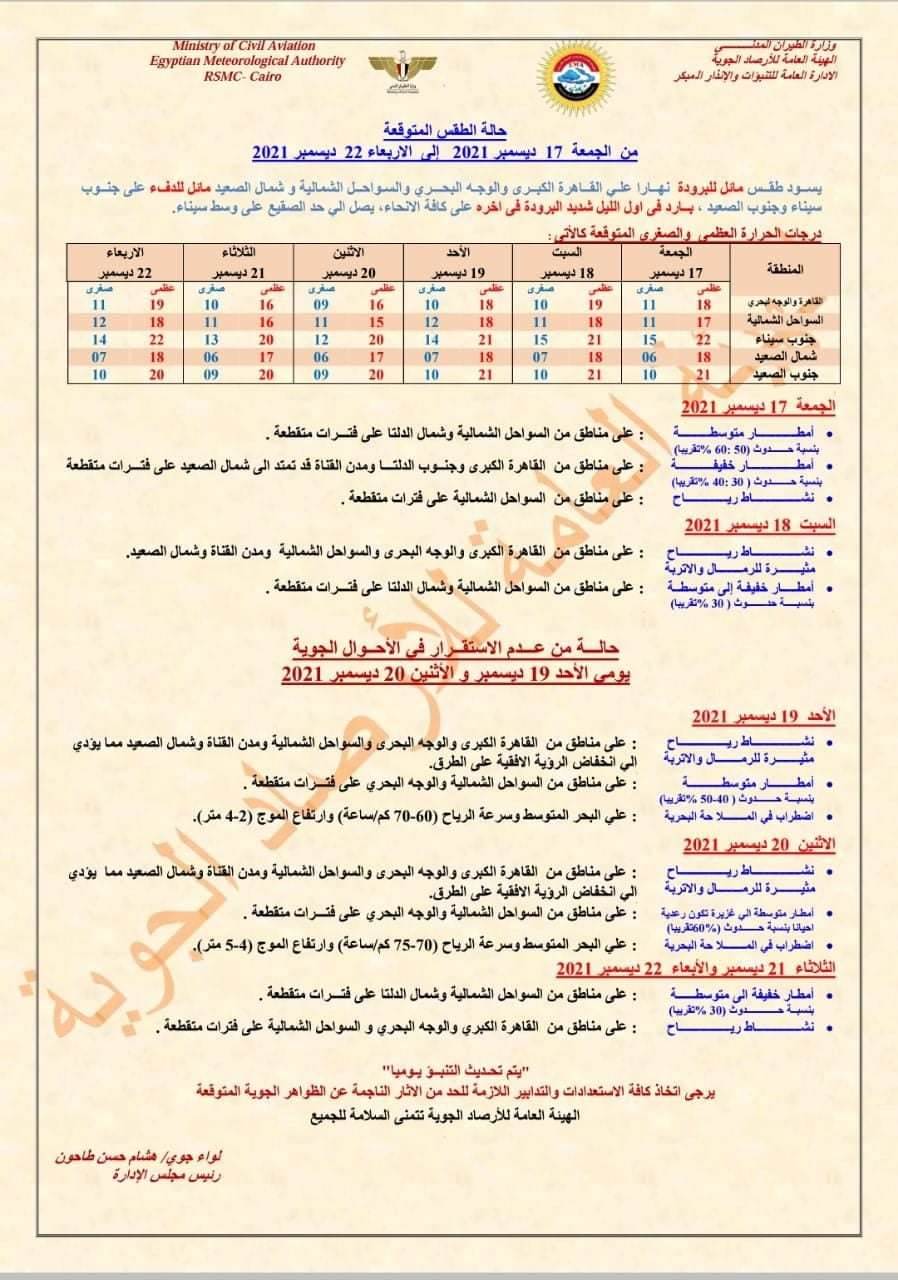 Ministry of Civil Aviation
Egyptian Meteorological Authority
RSMC- Cairo
وزارة الطيران المدنـــي
الهيئة العامة للأرصاد الجوية
الادارة العامة للتنبؤات والإنذار المبكر
حالة الطقس المتوقعة
من الجمعة 17 ديسمبر 2021 إلى الاربعاء 22 ديسمبر 2021
يسود طقس مائل للبرودة نهارا علي القاهرة الكبرى والوجه البحري والسواحل الشمالية و شمال الصعيد مائل للدفء على جنوب
سيناء وجنوب الصعيد ، بارد فى اول الليل شديد البرودة فى اخره على كافة الانحاء، يصل الي حد الصقيع على وسط سيناء.
درجات الحرارة العظمي والصغرى المتوقعة كالأتي:
المنطقة الجمعة السبت الأحد الأثنين الثلاثاء الاربعاء
17 ديسمبر 18 ديسمبر 19 ديسمبر 20 ديسمبر 21 ديسمبر 22 ديسمبر
عظمى صغرى عظمى صغرى عظمى صغرى عظمى صغرى عظمى صغرى عظمى صغرى
القاهرة والوجه لبحري 18 11 19 10 18 10 16 09 16 10 19 11
السواحل الشمالية 17 11 18 11 18 12 15 11 16 11 18 12
جنوب سيناء 22 15 21 15 21 14 20 12 20 13 22 14
شمال الصعيد 18 06 18 07 18 07 17 06 17 06 18 07
جنوب الصعيد 21 10 21 10 21 10 20 09 20 09 20 10
الجمعة 17 ديسمبر 2021
• أمطـــار متوسطـــة : على مناطق من السواحل الشمالية وشمال الدلتا على فترات متقطعة .
بنسبة حـــدوث (50 :60 %تقريبا)
• أمطـــار خفيفـــة : على مناطق من القاهرة الكبرى وجنوب الدلتـا ومدن القناة قد تمتد الى شمال الصعيد على فترات متقطعة
بنسبة حـــدوث (30 :40 %تقريبا)
• نشـــاط ريـــاح : على مناطق من السواحل الشمالية على فترات متقطعة .
السبت 18 ديسمبر 2021
• نشـــاط ريـــاح : على مناطق من القاهرة الكبرى والوجه البحرى والسواحل الشمالية ومدن القناة وشمال الصعيد.
مثيـــرة للرمـــال والاتربة
• أمطـــار خفيفة إلى متوسطـة : على مناطق من السواحل الشمالية وشمال الدلتا على فترات متقطعة .
بنســبة حـــدوث ( 30 %تقريبا)
حالـــة من عـــدم الاستقـــرار في الأحـــوال الجوية
يومي الأحد 19 ديسمبر و الأثنين 20 ديسمبر 2021
الأحد 19 ديسمبر 2021
• نشـــاط ريـــاح : على مناطق من القاهرة الكبرى والوجه البحرى والسواحل الشمالية ومدن القناة وشمال الصعيد مما يؤدي
مثيـــرة للرمـــال والاتربة الي انخفاض الرؤية الافقية على الطرق.
• أمطـــار متوسطـــة : على مناطق من السواحل الشمالية والوجه البحري على فترات متقطعة .
بنسبــة حـــدوث ( 40-50 %تقريبا)
• اضطراب في المـــلا حة البحرية : علي البحر المتوسط وسرعة الرياح (60-70 كم/ساعة) وارتفاع الموج (2-4 متر).
الاثنين 20 ديسمبر 2021
• نشـــاط ريـــاح : على مناطق من القاهرة الكبرى والوجه البحرى والسواحل الشمالية ومدن القناة وشمال الصعيد مما يؤدي
مثيـــرة للرمـــال والاتربة الي انخفاض الرؤية الافقية على الطرق.
• أمطار متوسطة الي غزيرة تكون رعدية : على مناطق من السواحل الشمالية والوجه البحري على فترات متقطعة .
احيانا بنسبة حـــدوث (60%تقريبا)
• اضطراب في المـــلا حة البحرية : علي البحر المتوسط وسرعة الرياح (70-75 كم/ساعة) وارتفاع الموج (4-5 متر).
الثلاثاء 21 ديسمبر والأبعاء 22 ديسمبر 2021
• أمطار خفيفة الى متوسطـــة : على مناطق من السواحل الشمالية وشمال الدلتا على فترات متقطعة .
بنسبــة حـــدوث (30 %تقريبا)
• نشـــاط ريـــاح : على مناطق من القاهرة الكبري والوجه البحري و السواحل الشمالية على فترات متقطعة .
"يتم تحديث التنبـؤ يـوميا"
يرجى اتخاذ كافة الاستعدادات والتدابير اللازمة للحد من الاثار الناجمة عن الظواهر الجوية المتوقعة
الهيئة العامة للأرصاد الجوية تتمنى السلامة للجميع
لواء جوي/ هشام حسن طاحون
رئيس مجلس الإدارة